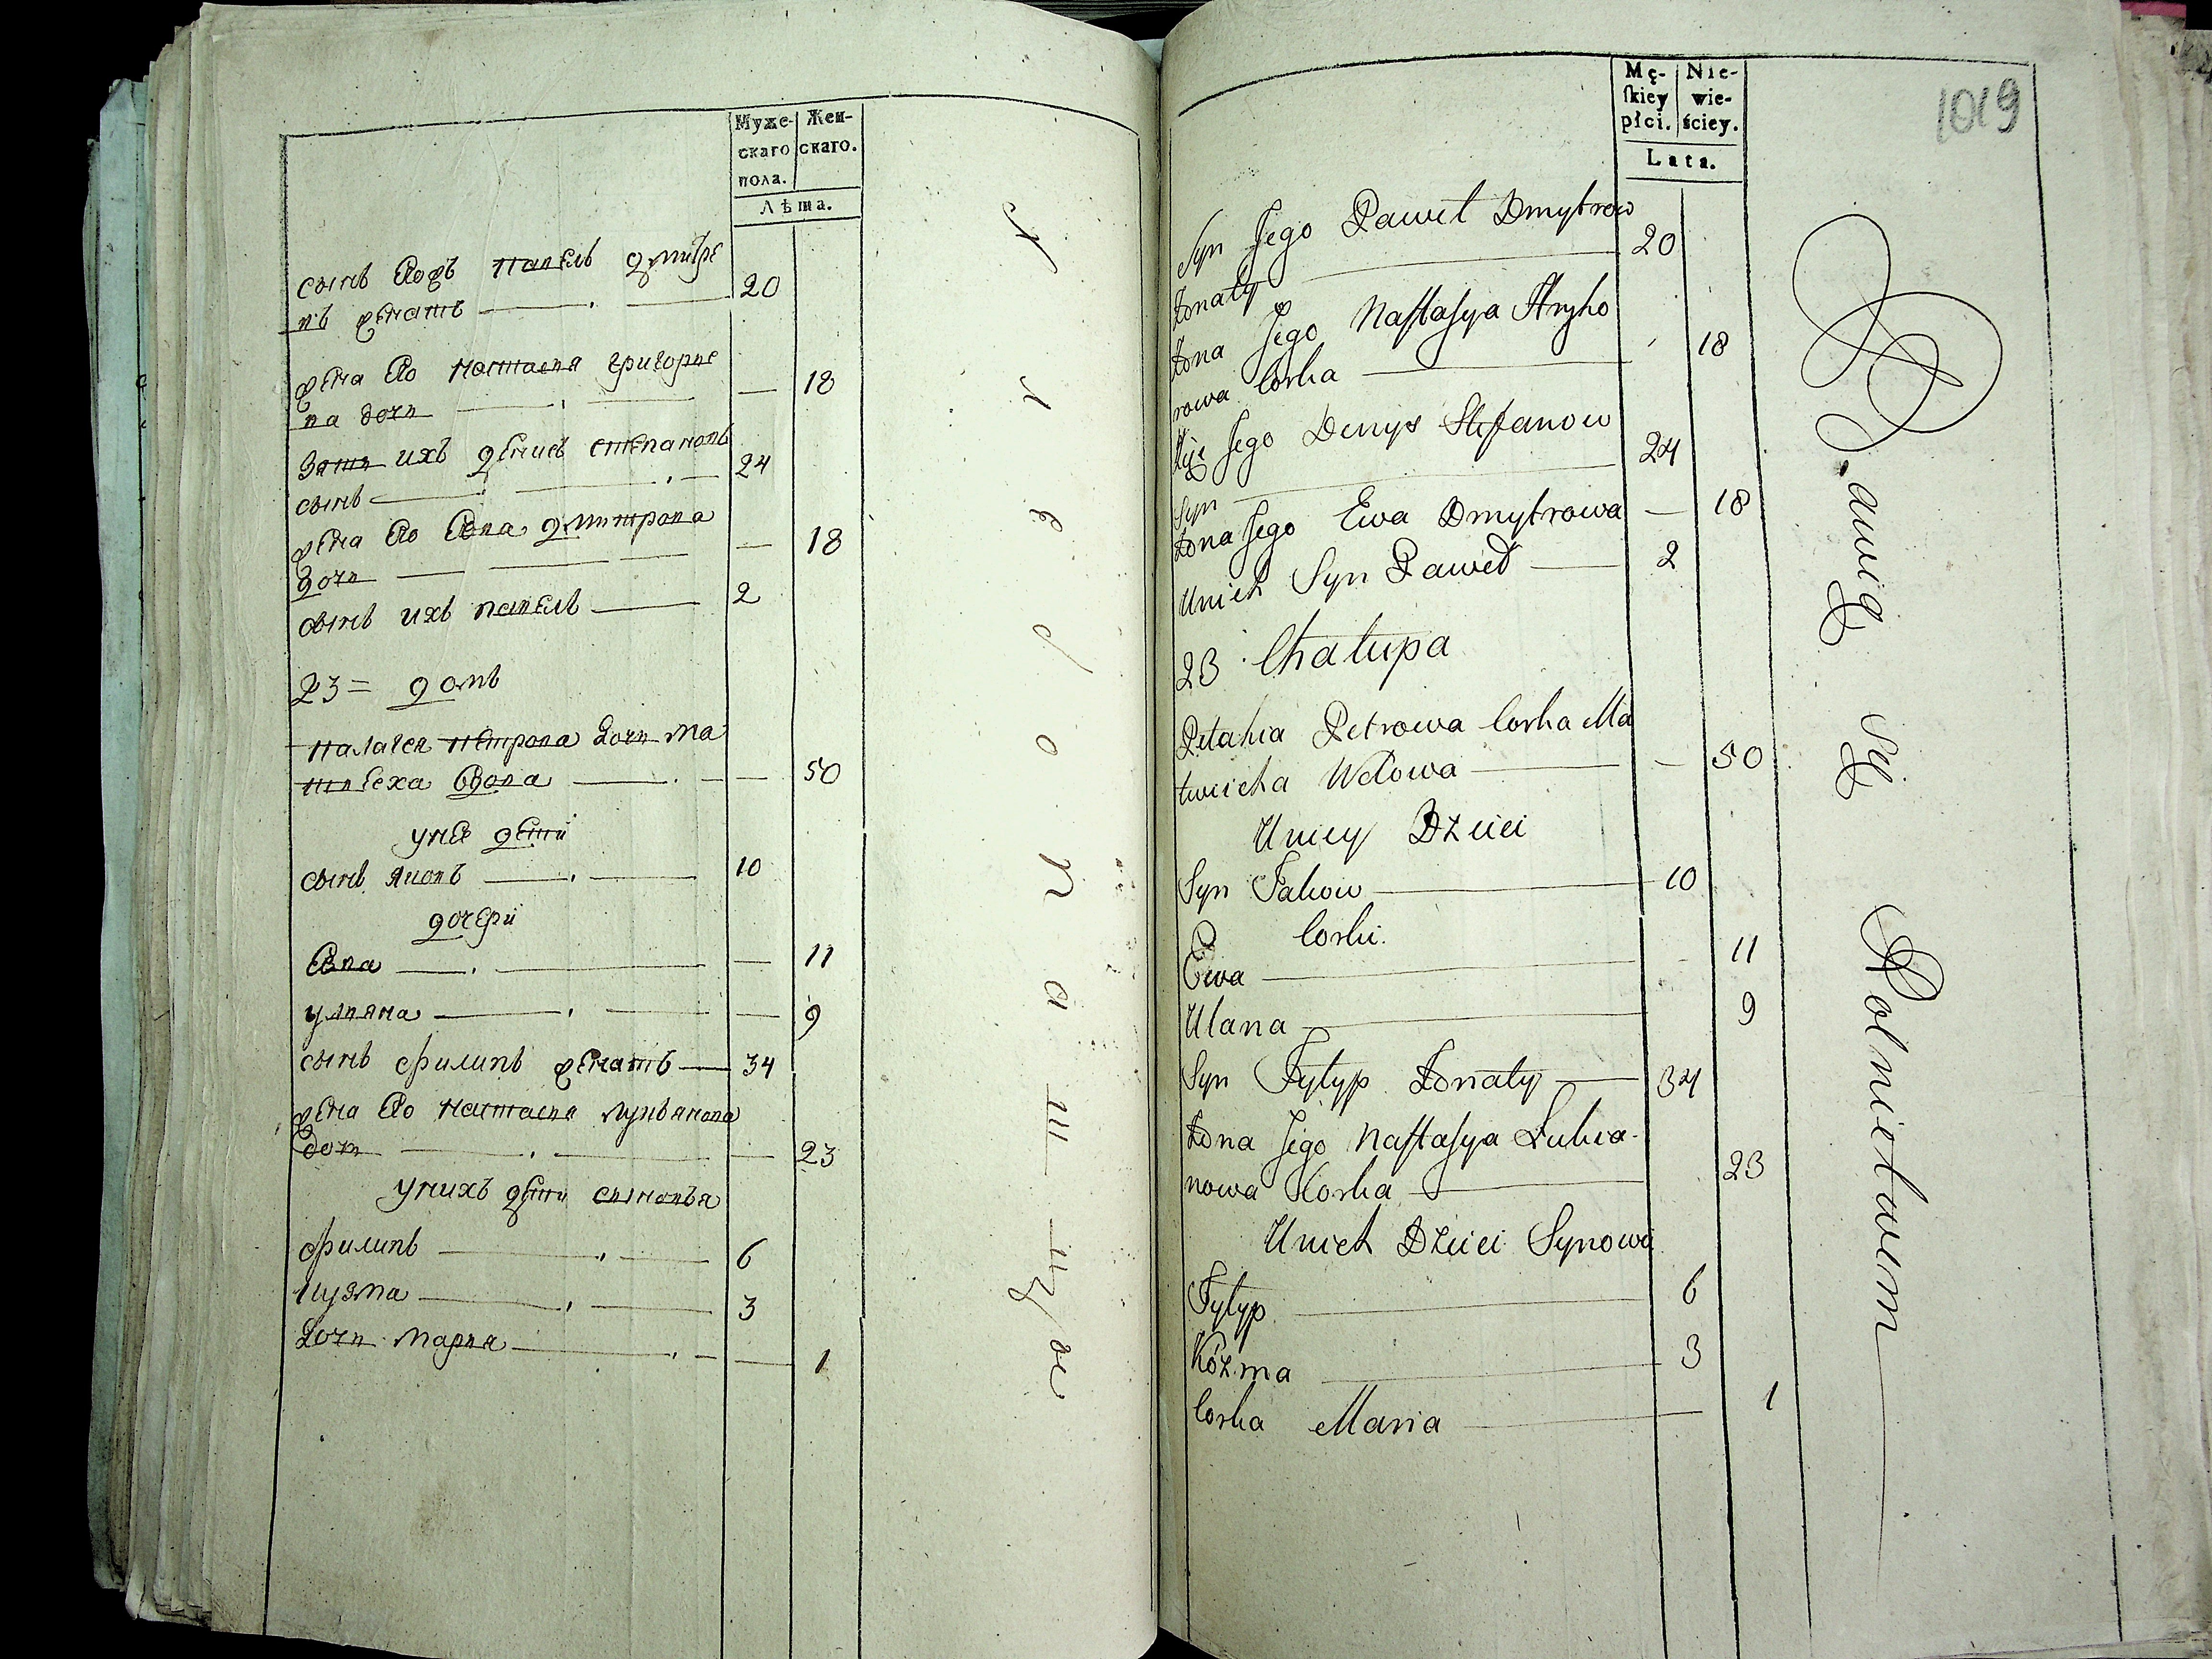 Муже-
скаго
пола.
Жен-
скаго.
Лѣта.
сынъ Его Павелъ дмитре
въ женатъ 20
жена Его Настасия григорие
ва дочь 18
Зять ихъ денисъ степановъ
сынъ 24
жена Его Евва дмитрова
дочь 18
сынъ ихъ павелъ 2
23 = домъ
Палагея Петрова Дочь Ма
твеиха вдова 50
у нее дети
сынъ яковъ 10
дочери
Евва 11
уляна 9
сынъ филипъ женатъ 34
жена Его Настасия лукянова
дочь 23
у нихъ дети сыновья
филипъ 6
кузма 3
Дочь Мария 1
1019
Mę-
ſkiey
płci.
Nie-
wie-
ściey.
Lata.
Syn Jego Paweł Dmytrow
żonaty 20
żona Jego Naſtaſya Hryho
rowa Corka 18
Jego Denys Stefanow
Syn 24
żona Jego Ewa Dmytrowa 18
Unich Syn Paweł 2
23 Chałupa
Petahia Petrowa Corka Ma
twiicha Wdowa 50
Uniey Dzieci
Syn Jakow 10
Corki.
Ewa 11
Ulana 9
Syn Fylyp Żonaty 34
żona Jego Naſtaſya Łukia-
nowa Corka 23
Unich Dzieci Synowi
Fylyp 6
Kózma 3
Corka Maria 1
Bawią się Rolnictwem